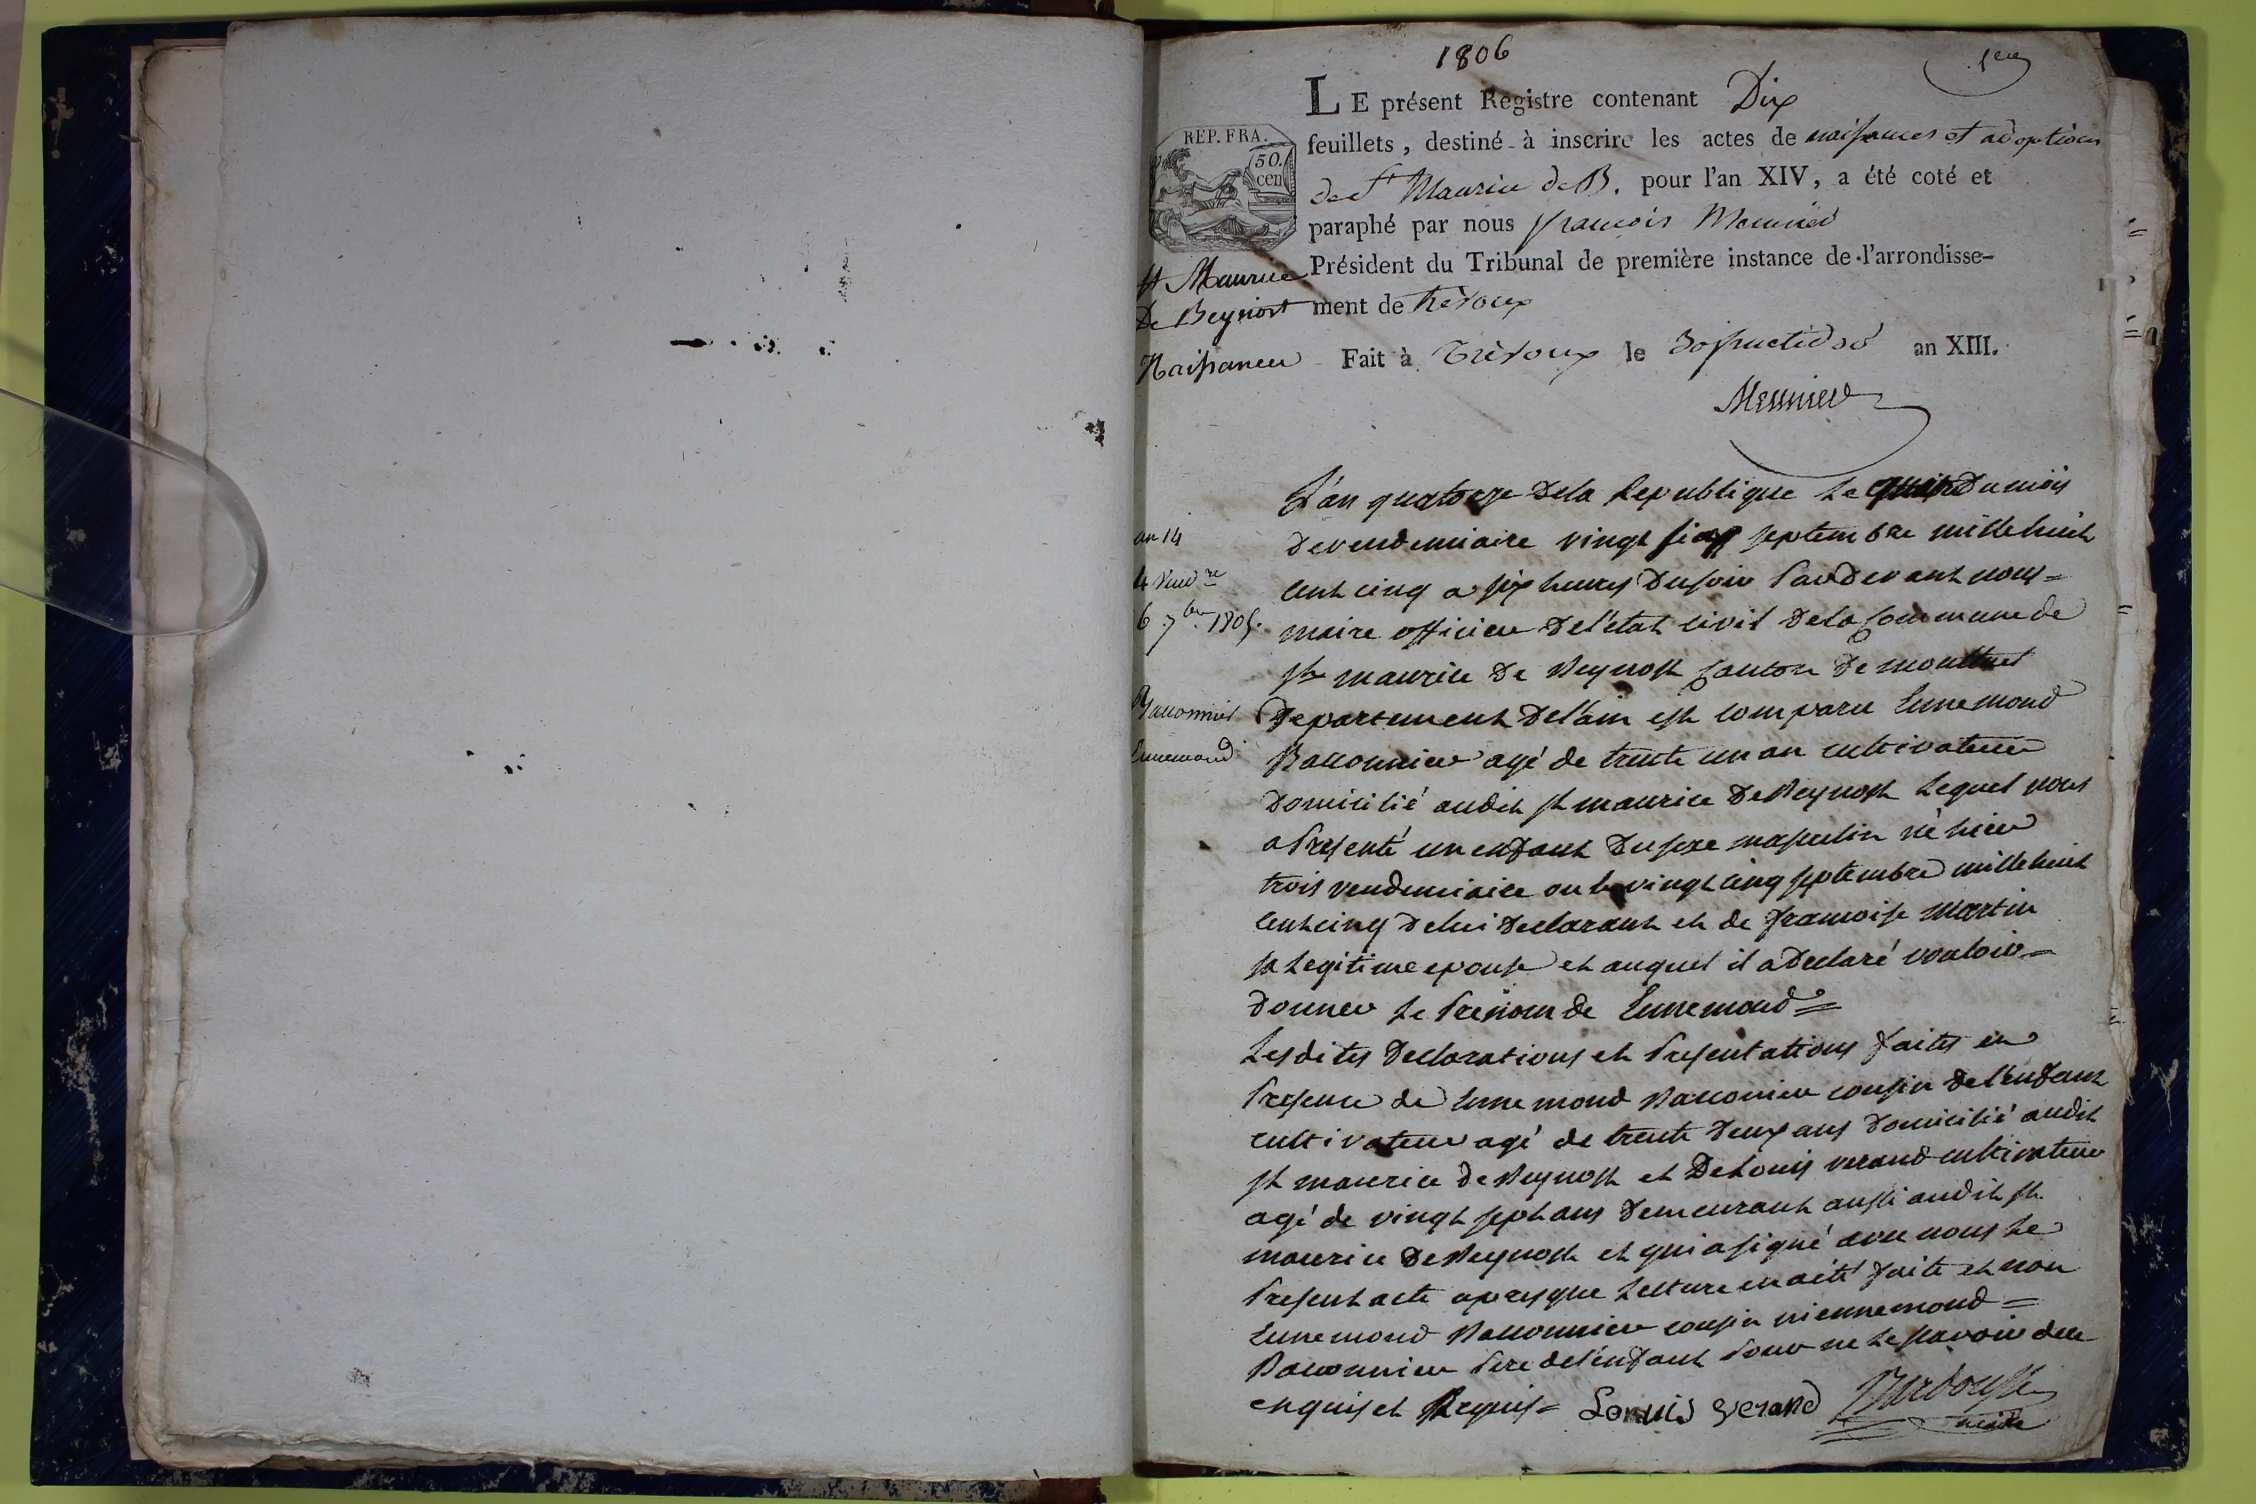 1806
1ere
LE présent Registre contenant Dix
feuillets, destiné à inscrire les actes de naissances et adoptions
de St Maurice de B. pour l'an XIV, a été coté et
paraphé par nous françois Meunier
Président du Tribunal de première instance de l'arrondisse-
ment de Trévoux
Fait à Trévoux le 30 fructidor an XIII.
Meunier
REP. FRA.
50.
cen
St Maurice
De Beynost
Naissances
an 14
4 Vendre
6 7bre 1805.
Bacconnier
Ennemond
L'an quatorze dela Republique le quatre du mois
devendemiaire vingt six septembre mille huit
cent cinq a six heures Du soir Pardevant nous =
maire officier De l'état civil Dela Commune de
st maurice De Beynost Canton De montluel
Departement Del'ain est comparu Ennemond
Bacconnier agé de trente un an cultivateur
Domicilié audit st maurice De Beynost Lequel nous
a Presenté un enfant Du sexe masculin né hier
trois vendemiaire ou le vingt cinq septembre mille huit
cent cinq De lui Declarant et de francoise martin
sa Legitime epouse et auquel il a Declaré vouloir =
Donner Le Prénom de Ennemond =
Lesdites Declarations et Presentations faites en
Presence de Ennemond Bacconier cousin De l'enfant
cultivateur agé de trente Deux ans Domicilié audit
st maurice de Beynost et De Louis verand cultivateur
agé de vingt sept ans Demeurant aussi audit st
maurice De Beynost et qui a signé avec nous Le
Present acte apres que Lecture en a été faite et non
Ennemond Bacconnier cousin ni ennemond =
Bacconnier Pere de l'enfant Pour ne Le savoir de ce
enquis et Requis = Louis verand
maire